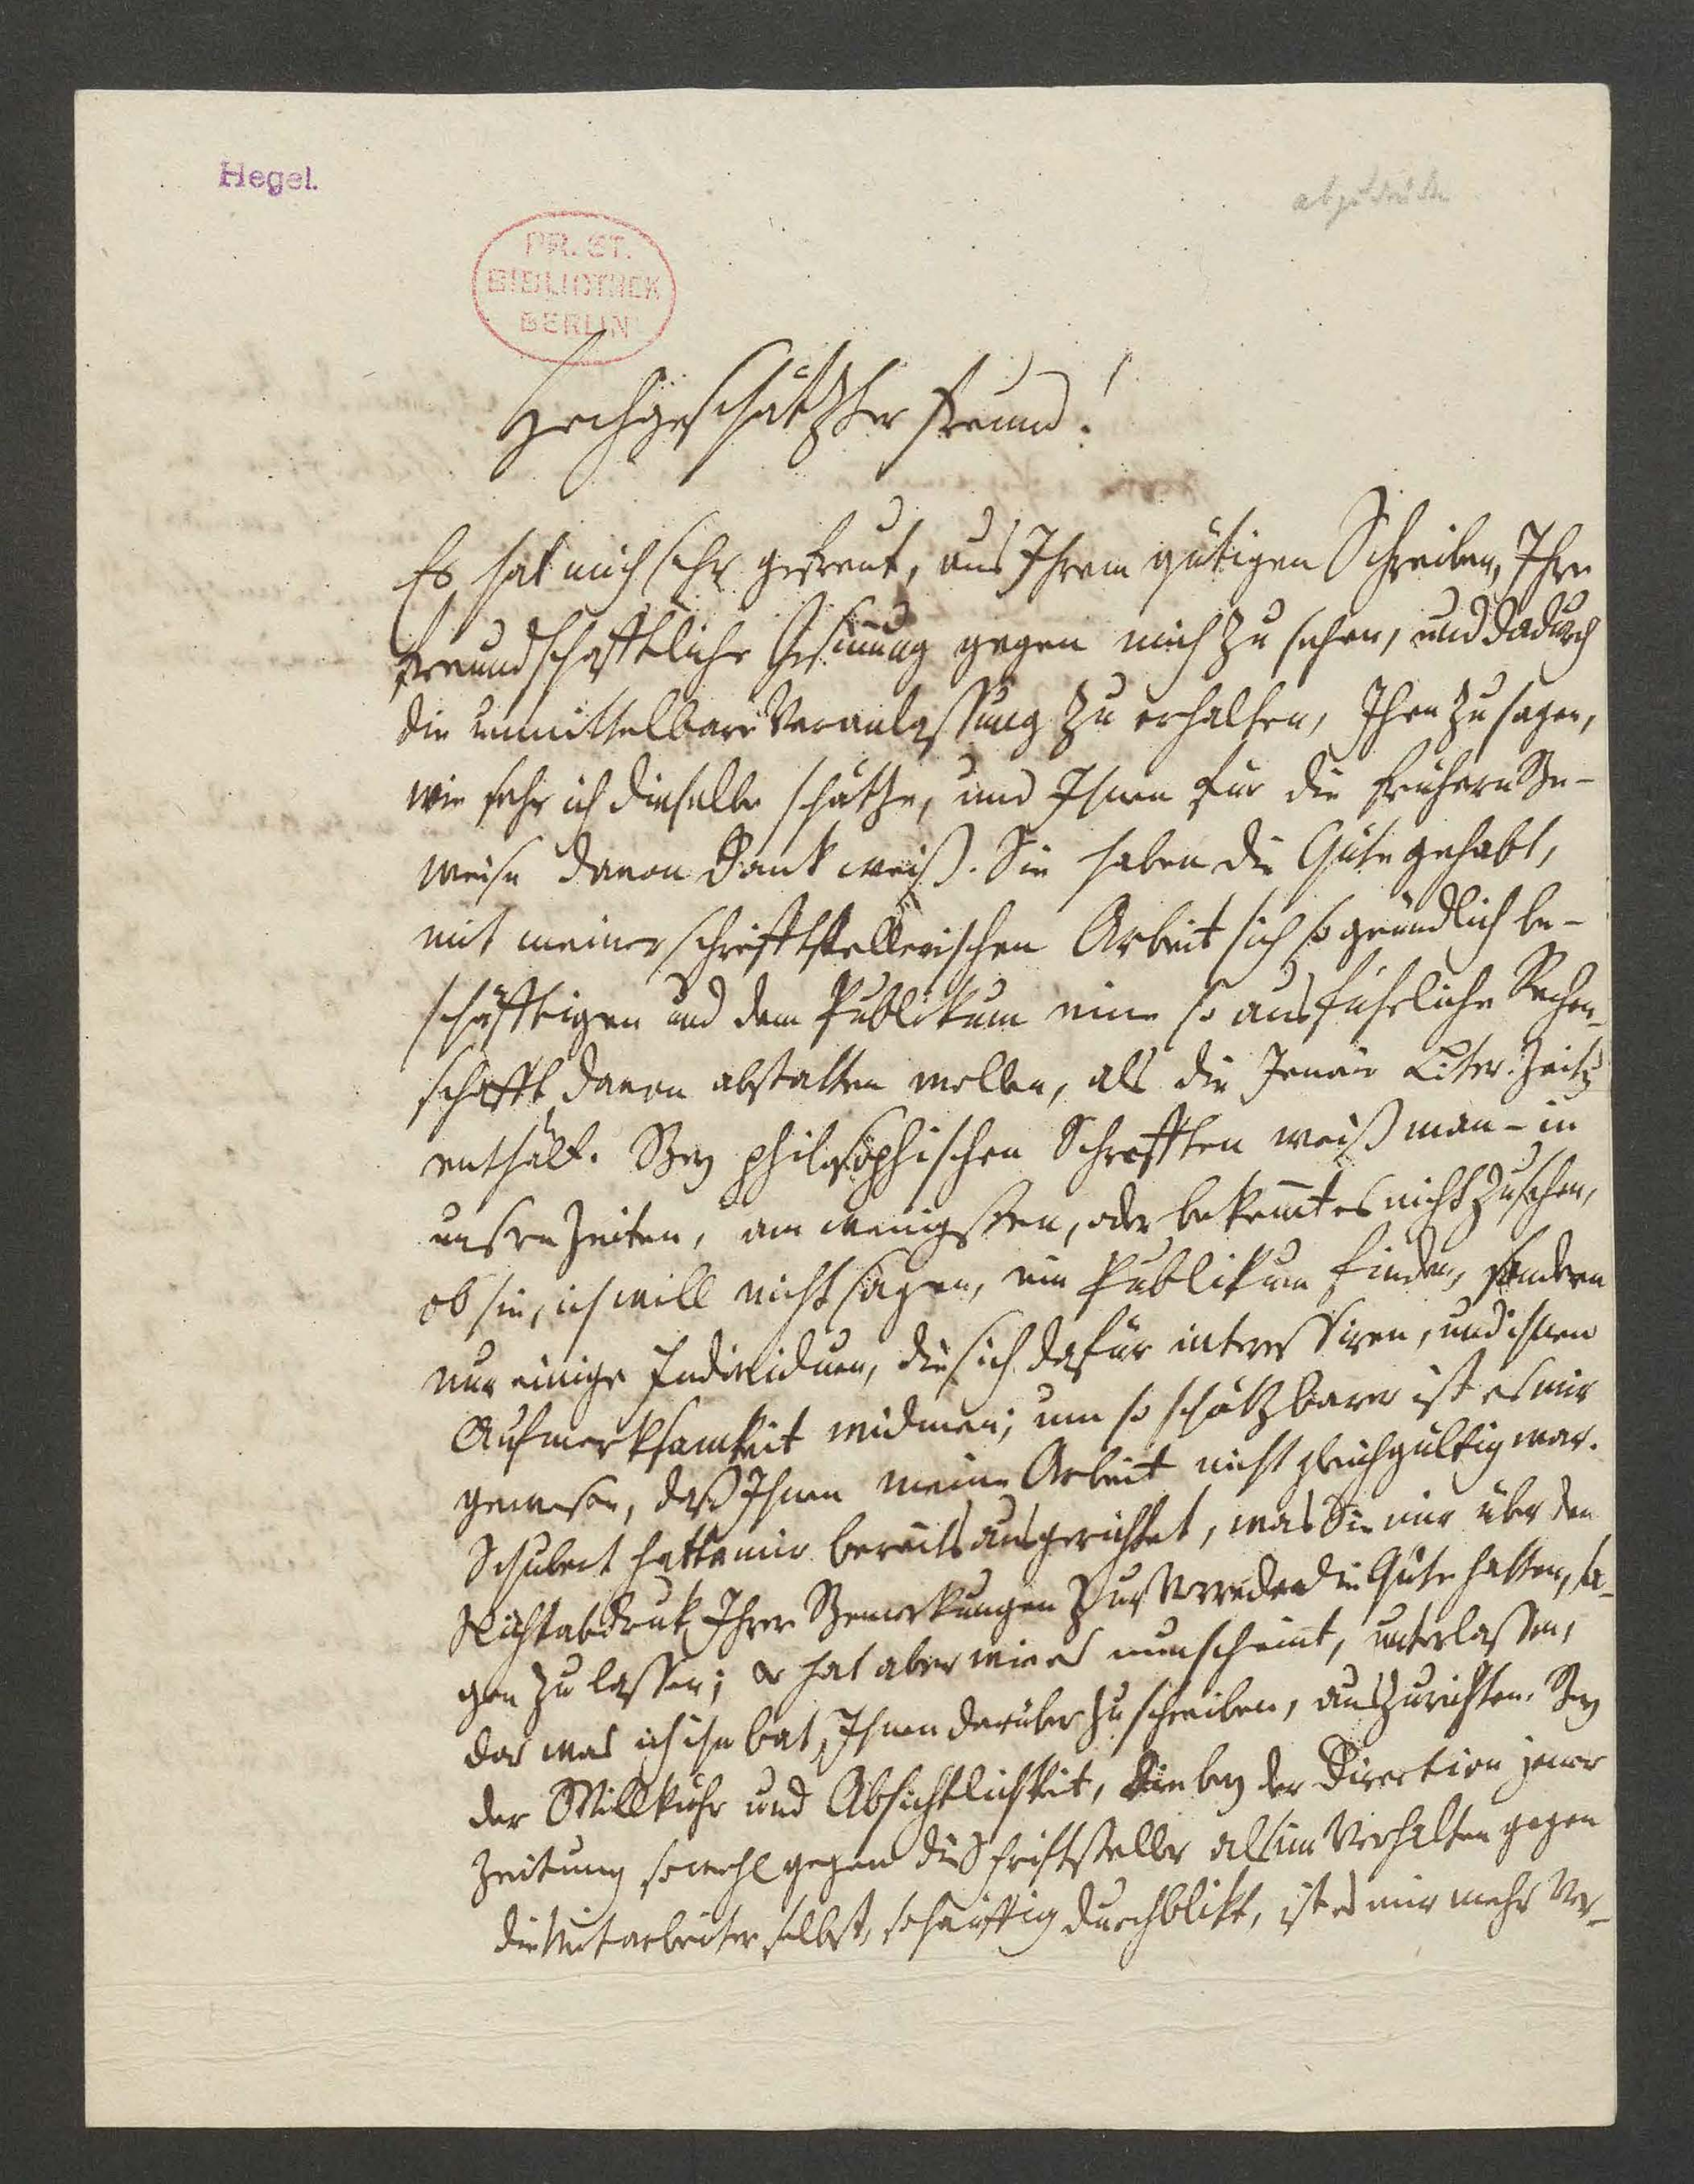 Hegel.
abgedruckt
PR. ST.
BIBLIOTHEK
BERLIN
Hochgeschätzter Freund!
Es hat mich sehr gefreut, aus Ihrem gütigen Schreiben, Ihre
freundschaftliche Gesinnung gegen mich zu sehen, und dadurch
die unmittelbare Veranlassung zu erhalten, Ihnen zu sagen,
wie sehr ich dieselbe schätze, und Ihnen für die frühern Be-
weise davon Dank weiß. Sie haben die Güte gehabt,
mit meiner schriftstellerischen Arbeit sich so gründlich be-
schäfftigen und dem Publikum eine so ausführliche Rechen-
schafft davon abstatten wollen, als die Jenaer Liter. Zeitg
enthält. Bey philosophischen Schrifften weiß man – in
unsren Zeiten, am wenigsten, oder bekom̅t es nicht zu sehen,
ob sie, ich will nicht sagen, ein Publikum finden, sondern
nur einige Individuen, die sich dafür interessiren, und ihnen
Aufmerksamkeit widmen; um so schätzbarer ist es mir
gewesen, daß Ihnen meine Arbeit nicht gleichgültig war.
Schubert hatte mir bereits ausgerichtet, was Sie mir über den
Nichtabdruk Ihrer Bemerkungen zur Vorrede die Güte hatten, sa-
gen zu lassen; er hat aber wie es nun scheint, unterlassen,
das was ich ihn bat, Ihnen darüber zu schreiben, auszurichten. Bey
der Willkühr und Absichtlichkeit, die bey der Direction jener
Zeitung sowohl gegen die Schriftsteller als im Verhalten gegen
die Mitarbeiter selbst, so häuffig durchblikt, ist es mir mehr Ver-